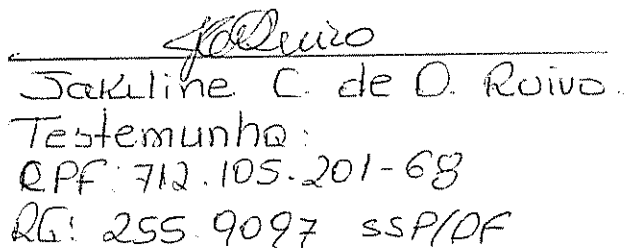 Jakeline C. de O. Roivo.
Testemunha:
CPF: 712.105.201-68
RG: 255.9097 SSP/DF